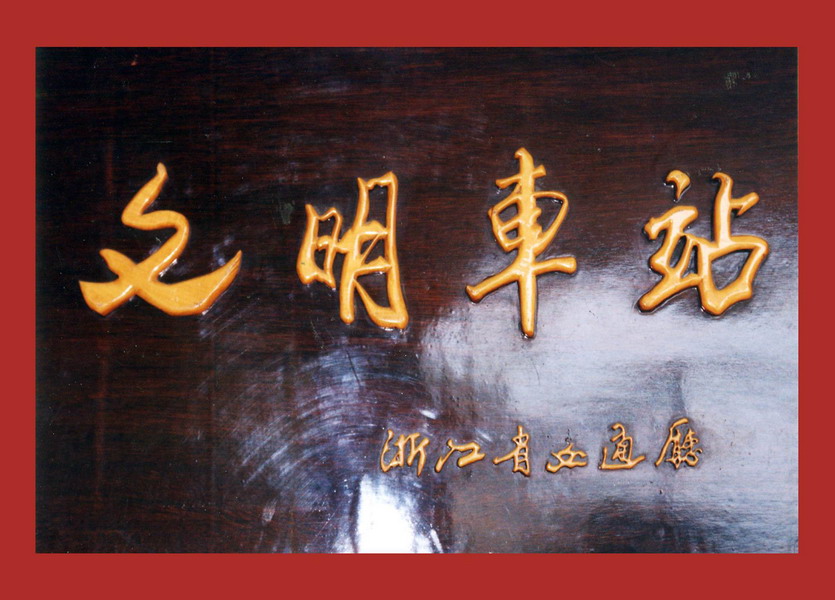 文明車站
浙江省交通廳